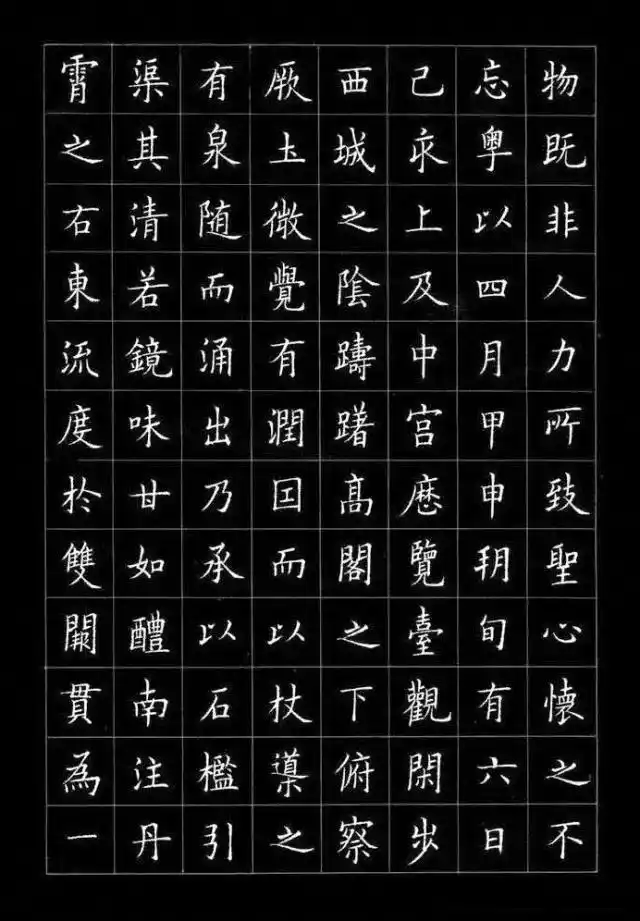 物既非人力所致聖心懷之不
忘粤以四月甲申朔旬有六日
己亥上及中宫歷覽臺觀閑步
西城之陰躊躇髙閣之下俯察
厥土微覺有潤因而以杖導之
有泉随而涌出乃承以石檻引
渠其清若鏡味甘如醴南注丹
霄之右東流度於雙闕貫為一